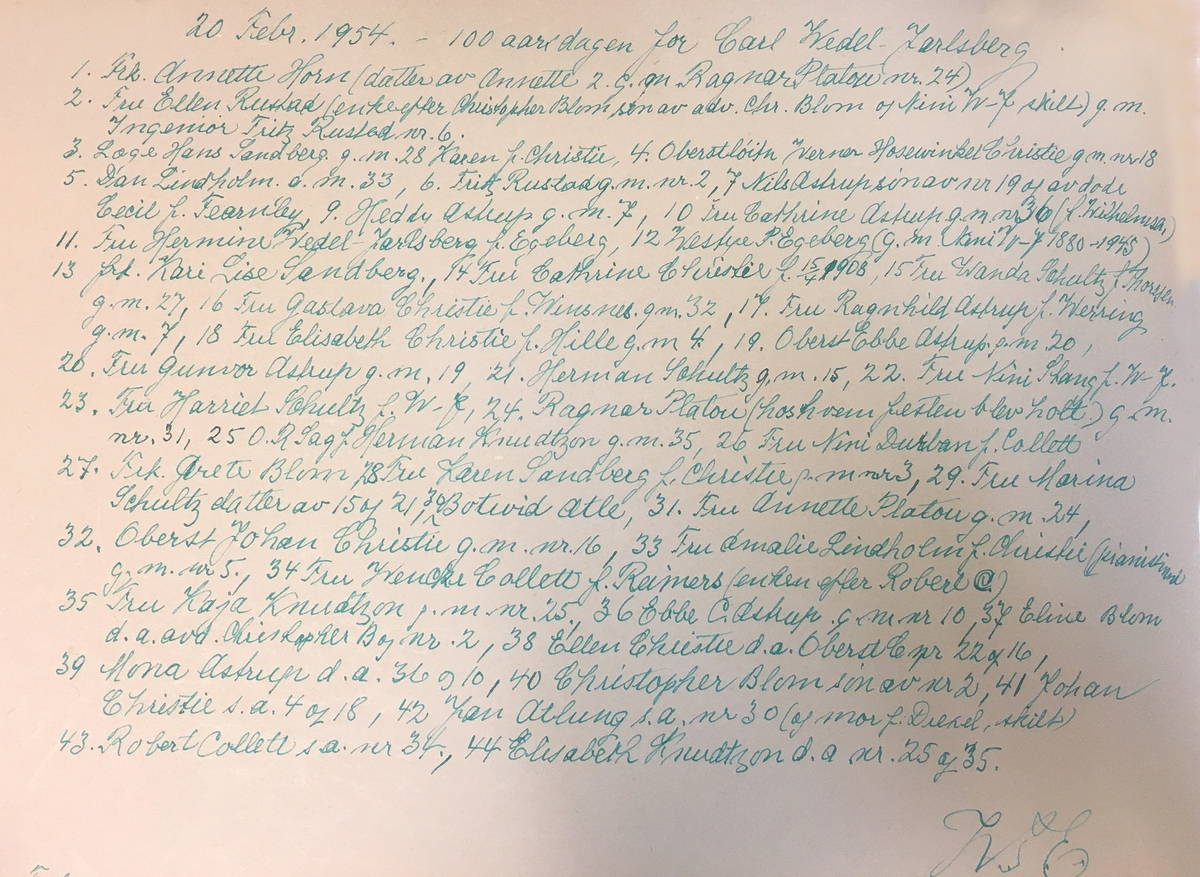 20 Febr. 1954. - 100 aarsdagen for Carl Wedel-Jarlsberg
1. Frk. Annette Horn (datter av Annette 2. g. gn Ragnar Platou nr. 24)
2. Fru Ellen Rustad (enke efter Christopher Blom sön av adv. Chr. Blom og Nini W-J skilt) g. m.
Ingeniör Fritz Rustad nr. 6.
3. Læge Hans Sandberg g. m. 28 Karen f. Christie, 4. Oberstlöitn Werner Hosewinkel Christie g m. nr 18
5. Dan Lindholm. g. m. 33, 6. Fritz Rustad g. m. nr. 2, 7 Nils Astrup sön av nr 19 og av döde
Cecil f. Fearnley, 9. Heddy Astrup g. m. 7, 10 Fru Cathrine Astrup g. m. nr 36 (f. Wilhelmsen)
11. Fru Hermine Wedel-Jarlsberg f. Egeberg, 12 Westye P. Egeberg (g. m. Nini W-J 1880-1945)
13 Frk. Kari Lise Sandberg., 14 Fru Cathrine Christie f. 15/4 1908, 15 Fru Wanda Schultz f. Thoresen
g. m. 27, 16 Fru Gustava Christie f. Winsnes. g m. 32, 17. Fru Ragnhild Astrup f. Werring
g. m. 7, 18 Fru Elisabeth Christie f. Hille g. m. 4, 19. Oberst Ebbe Astrup g. m. 20,
20. Fru Gunvor Astrup g. m. 19, 21. Herman Schultz g. m. 15, 22. Fru Nini Stang f. W-J.
23. Fru Harriet Schultz f. W-J, 24. Ragnar Platou (hos hvem festen blev holt) g. m.
nr. 31, 25 O. R Sagf. Herman Knudtzon g. m. 35, 26 Fru Nini Durban f. Collett
27. Frk. Grete Blom 28 Fru Karen Sandberg f. Christie g. m nr 3, 29. Fru Marina
Schultz datter av 15 og 21, 30 Botwid Atle, 31. Fru Annette Platou g. m. 24,
32. Oberst Johan Christie g. m. nr. 16, 33 Fru Amalie Lindholm f. Christie (pianistinne)
g. m. nr 5., 34 Fru Wencke Collett f. Reimers (enken efter Robert C.)
35 Fru Kaja Knudtzon g. m. nr. 25, 36 Ebbe C. Astrup. g. m nr 10, 37 Eline Blom
d. a. avd. Christopher B og nr. 2, 38 Ellen Christie d. a. Oberst C nr 22 og 16,
39 Mona Astrup d. a. 36 og 10, 40 Christopher Blom sön av nr 2, 41 Johan
Christie s. a. 4 og 18, 42 Jan Atlung s. a. nr 30 (og mor f. Diesel, skilt)
43. Robert Collett s. a. nr 34., 44 Elisabeth Knudtzon d. a nr. 25 og 35.